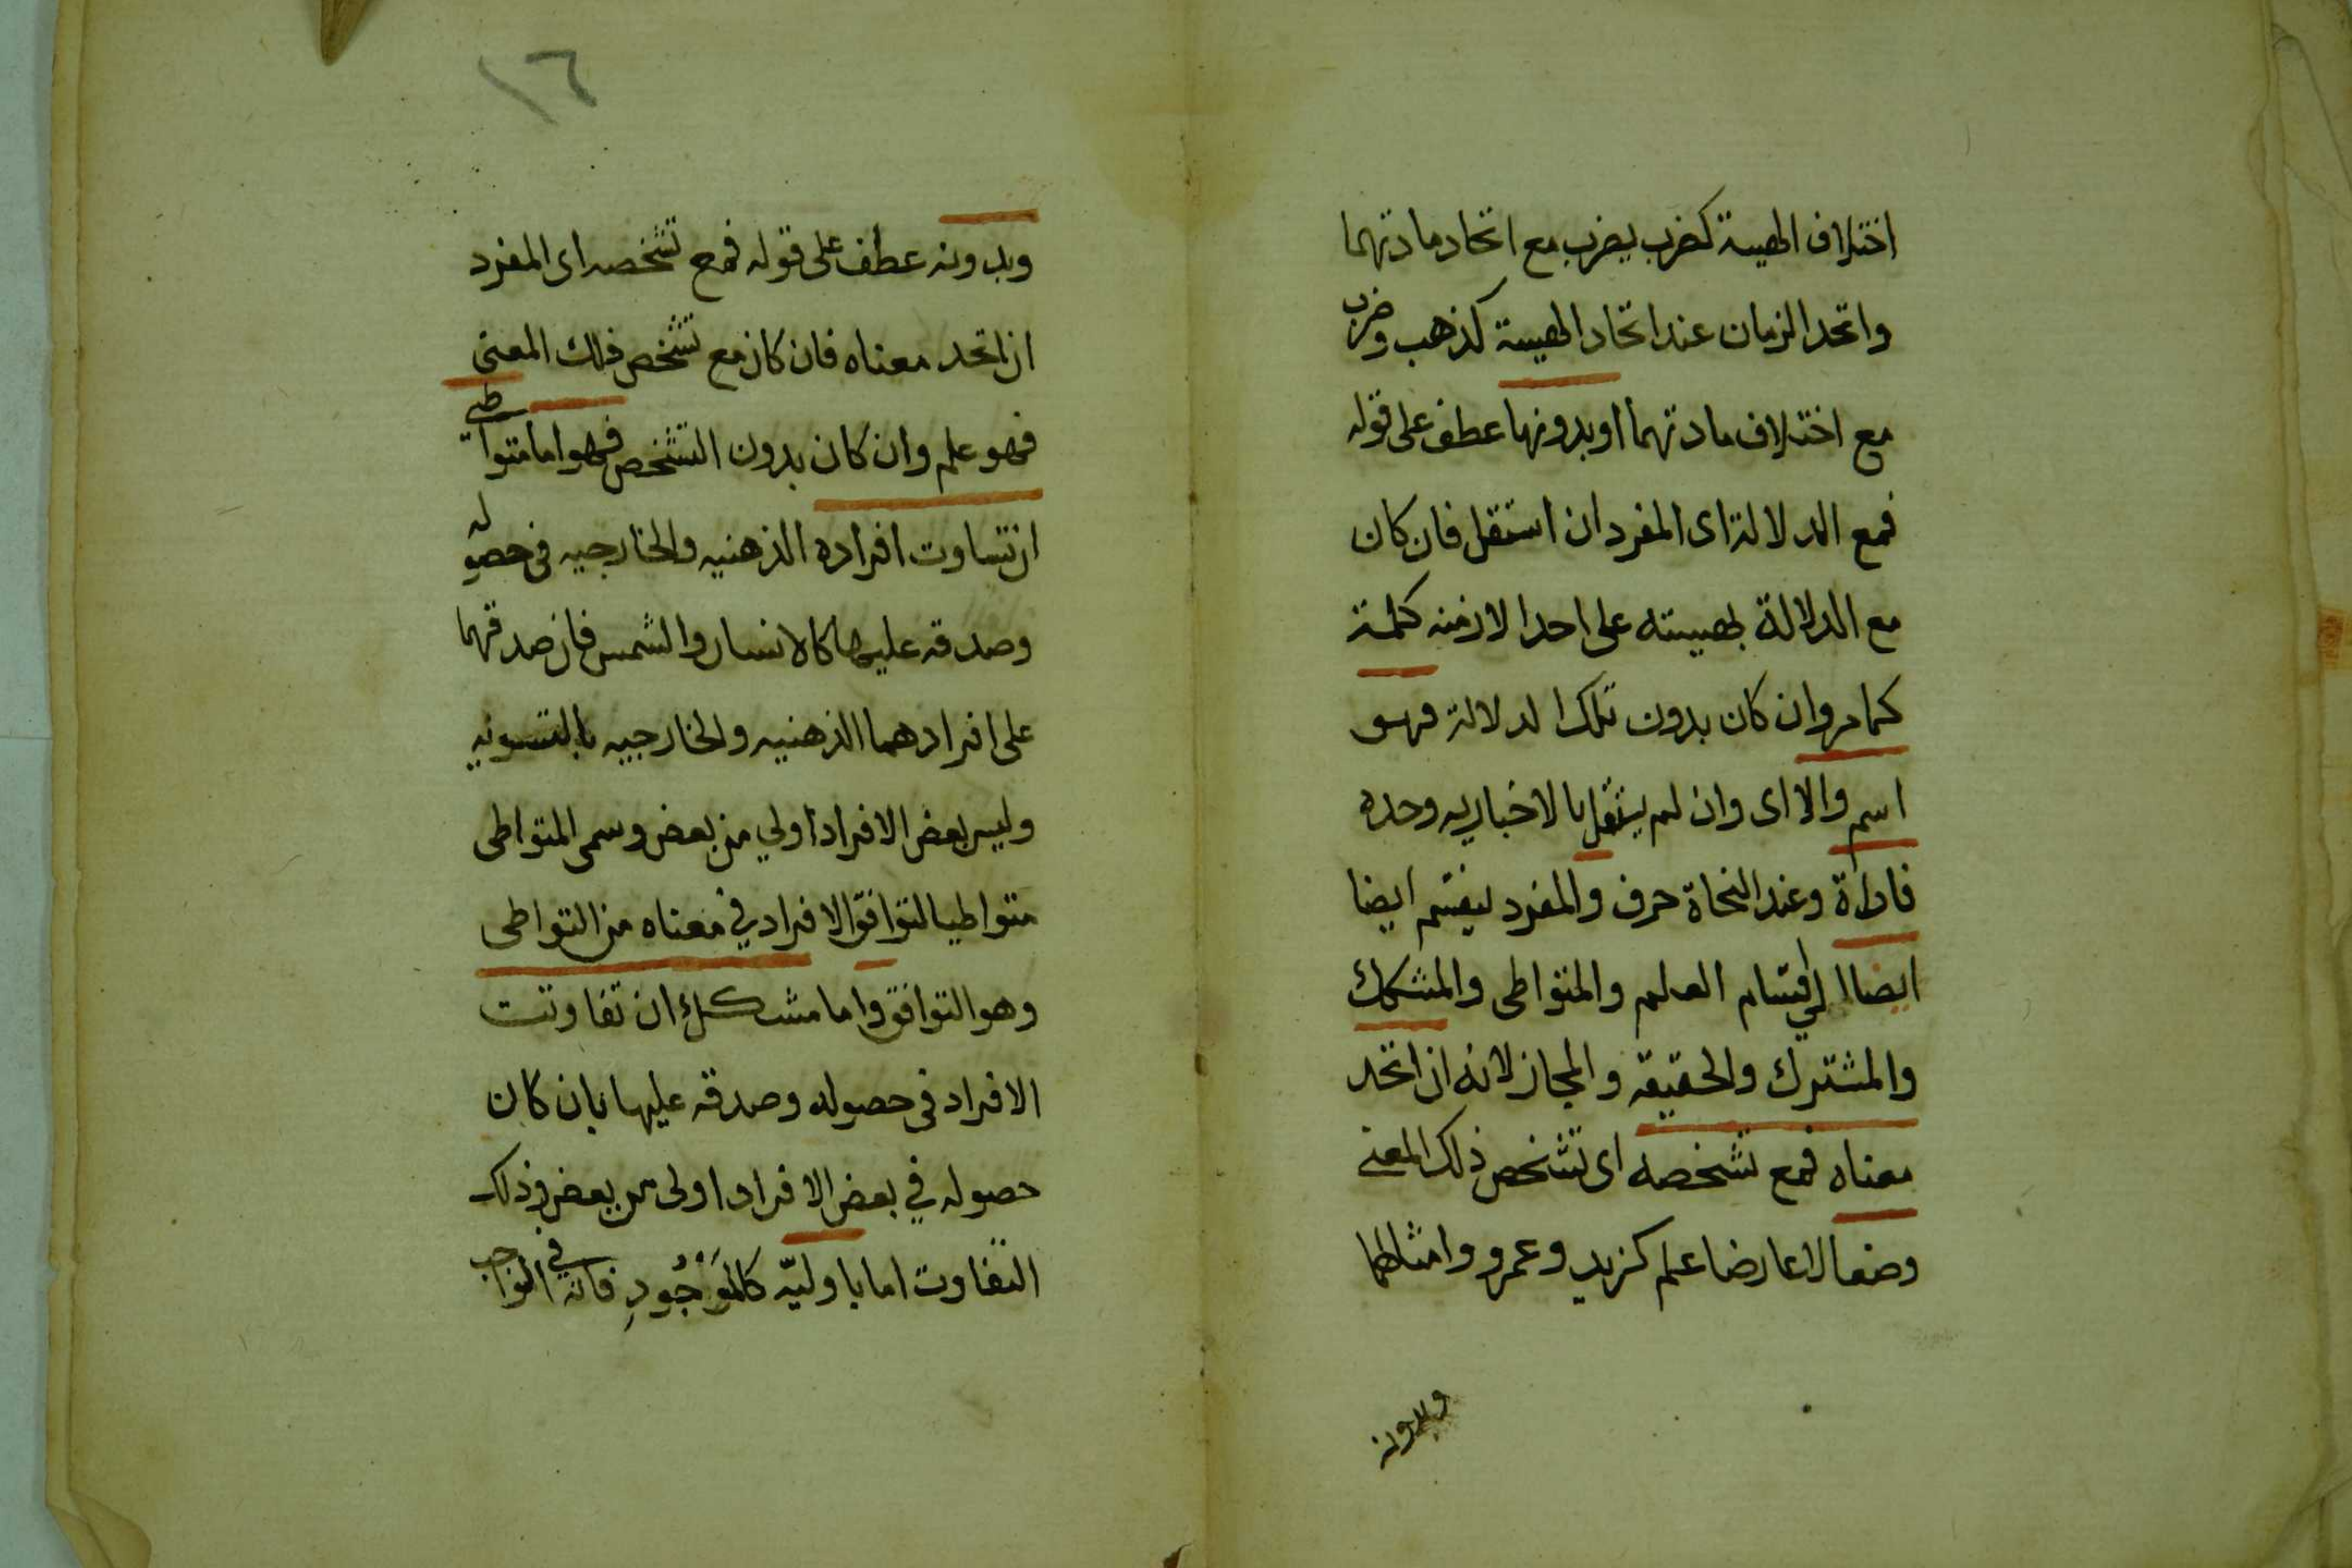 اختلاف الهيية كضرب يضرب مع اتحاد مادتهما
واتحد الزمان عند اتحاد الهيية كذهب وضرب
مع اختلاف مادتهما او بدونها عطف على قوله
فمع الدلالة اى المفرد ان استقل فان كان
مع الدلالة بهيبته على احد الازمنه كلمة
كما مر وان كان بدون تلك الدلالة فهو
اسم والا اى وان لم يستقل بالاخبار به وحده
فاداة وعند النحاة حرف والمفرد ينقسم ايضا
ايضا الى اقسام العلم والمتواطى والمشكك
والمشترك والحقيقه والمجاز لانه ان اتحد
معناه فمع تشخصه اى تشخص ذلك المعنى
وضعا لا عارضا علم كزيد وعمرو وامثالهما
وبدونه
١٦
وبدونه عطف على قوله فمع تشخصه اى المفرد
ان اتحد معناه فان كان مع تشخص ذلك المعنى
فهو علم وان كان بدون التشخص فهو اما متواطى
ان تساوت افراده الذهنيه والخارجيه فى حصوله
وصدقه عليها كالانسان والشمس فان صدقهما
على افرادهما الذهنيه والخارجيه بالتسويه
وليس بعض الافراد اولي من بعض وسمى المتواطى
متواطيا لتوافق الافراد في معناه من التواطى
وهو التوافق واما مشكك ان تفاوتت
الافراد فى حصوله وصدقه عليها بان كان
حصوله في بعض الافراد اولى من بعض وذلك
التفاوت اما باوليّه كالمَوْجُودِ فانه في الواجب